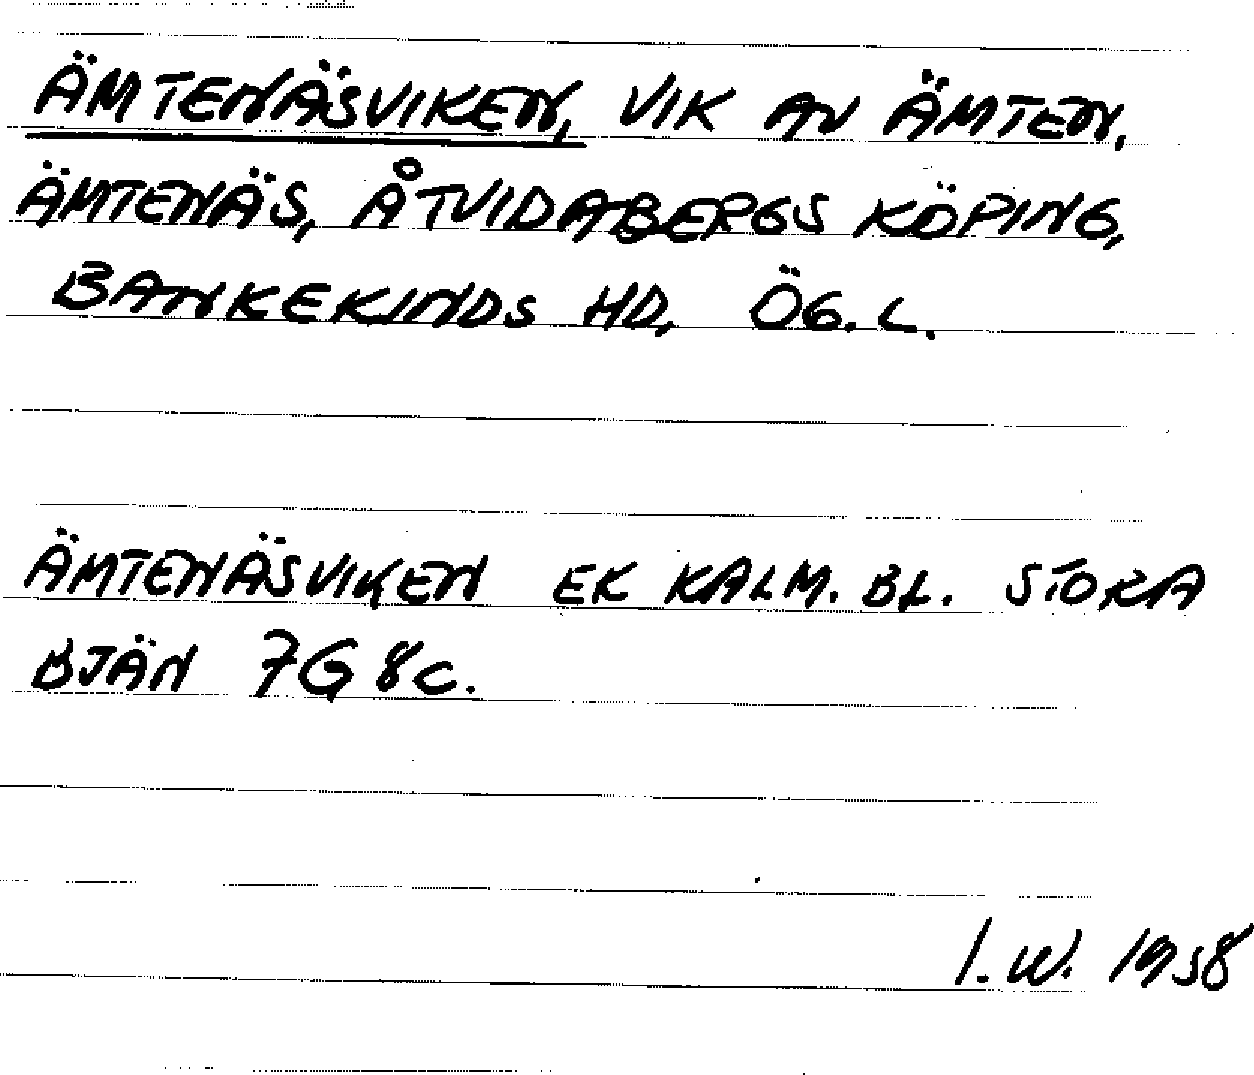 ÄMTENÄSVIKEN, VIK AV ÄMTEN,
ÄMTENÄS, ÅTVIDABERGS KÖPING,
BANKEKINDS HD, ÖG. L.
ÄMTENÄSVIKEN EK KALM. BL. STORA
BJÄN 7G 8C.
I. W. 1958